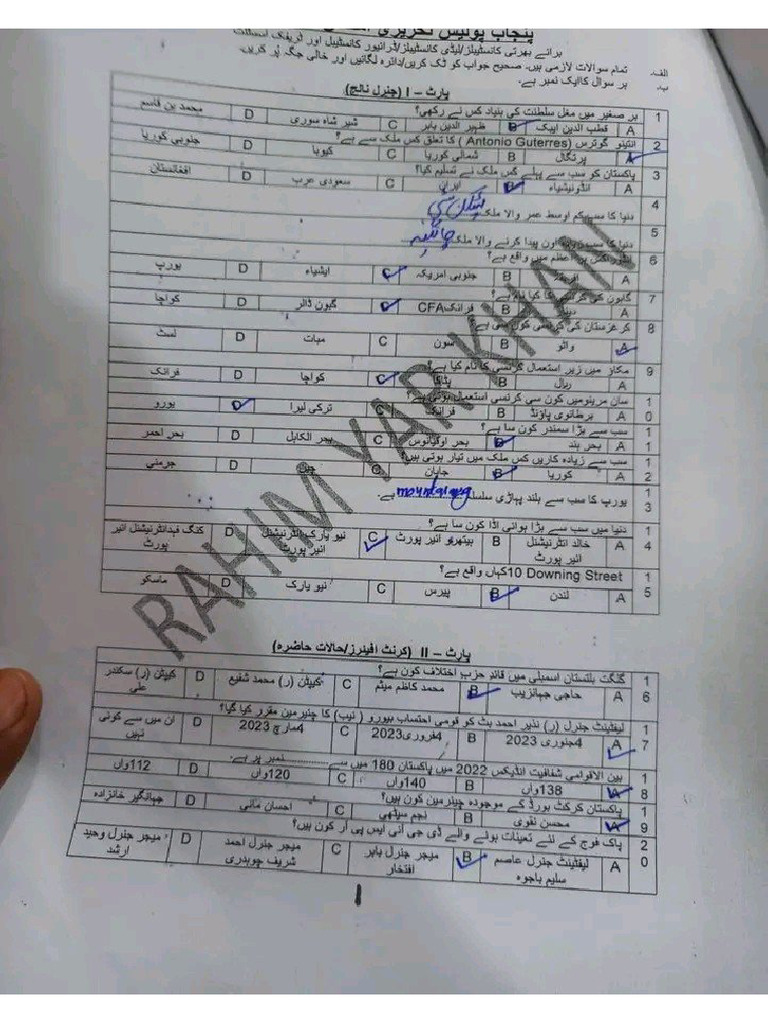 پنجاب پولیس تحریری
برائے بھرتی کانسٹیبلز/لیڈی کانسٹیبلز/ڈرائیور کانسٹیبل اور ٹریفک اسسٹنٹ
الف۔ تمام سوالات لازمی ہیں۔ صحیح جواب کو ٹک کریں/دائرہ لگائیں اور خالی جگہ پر کریں۔
ب۔ ہر سوال کا ایک نمبر ہے۔
پارٹ – I (جنرل نالج)
1 بر صغیر میں مغل سلطنت کی بنیاد کس نے رکھی؟
A قطب الدین ایبک B ظہیر الدین بابر C شیر شاہ سوری D محمد بن قاسم
2 انتینو گوترس (Antonio Guterres) کا تعلق کس ملک سے ہے؟
A پرتگال B شمالی کوریا C کیوبا D جنوبی کوریا
3 پاکستان کو سب سے پہلے کس ملک نے تسلیم کیا؟
A انڈونیشیاء B ایران C سعودی عرب D افغانستان
4 دنیا کا سب کم اوسط عمر والا ملک
5 دنیا کا سب زیادہ اون پیدا کرنے والا ملک چائنہ
6 بر اعظم میں واقع ہے؟
A B جنوبی امریکہ C ایشیاء D یورپ
7 گابون کی کرنسی کا کیا نام ہے؟
A B فرانک CFA C گبون ڈالر D کواچا
8 کرغزستان کی کرنسی کون سی ہے؟
A واٹو B سون C میات D لسٹ
9 مکاؤ میں زیر استعمال کرنسی کا نام کیا ہے؟
A ریال B پٹاکا C کواچا D فرانک
10 سان مرینو میں کون سی کرنسی استعمال ہوتی ہے؟
A برطانوی پاؤنڈ B فرانک C ترکی لیرا D یورو
11 سب سے بڑا سمندر کون سا ہے؟
A بحر ہند B بحر اوقیانوس C بحر الکاہل D بحر احمر
12 سب سے زیادہ کاریں کس ملک میں تیار ہوتی ہیں؟
A کوریا B جاپان C چین D جرمنی
13 یورپ کا سب سے بلند پہاڑی سلسلہ ہے۔
14 دنیا میں سب سے بڑا ہوائی اڈا کون سا ہے؟
A خالد انٹرنیشنل ائیر پورٹ B ہیتھرو ائیر پورٹ C نیو یارک انٹرنیشنل ائیر پورٹ D کنگ فہد انٹرنیشنل ائیر پورٹ
15 10 Downing Street کہاں واقع ہے؟
A لندن B پیرس C نیو یارک D ماسکو
RAHIM YAR KHAN
پارٹ – II (کرنٹ افیئرز/حالات حاضرہ)
16 گلگت بلتستان اسمبلی میں قائد حزب اختلاف کون ہے؟
A حاجی جہانزیب B محمد کاظم میثم C کیپٹن (ر) محمد شفیع D کیپٹن (ر) سکندر علی
17 لیفٹیننٹ جنرل (ر) نذیر احمد بٹ کو قومی احتساب بیورو (نیب) کا چئیرمین مقرر کیا گیا؟
A 4جنوری 2023 B 4فروری2023 C 4مارچ 2023 D ان میں سے کوئی نہیں
18 بین الاقوامی شفافیت انڈیکس 2022 میں پاکستان 180 میں سے ........ نمبر پر ہے۔
A 138واں B 140واں C 120واں D 112واں
19 پاکستان کرکٹ بورڈ کے موجودہ چیئرمین کون ہیں؟
A محسن نقوی B نجم سیٹھی C احسان مانی D جہانگیر خانزادہ
20 پاک فوج کے لئے تعینات ہونے والے ڈی جی آئی ایس پی آر کون ہیں؟
A لیفٹینٹ جنرل عاصم سلیم باجوہ B میجر جنرل بابر افتخار C میجر جنرل احمد شریف چوہدری D میجر جنرل وحید ارشد
1